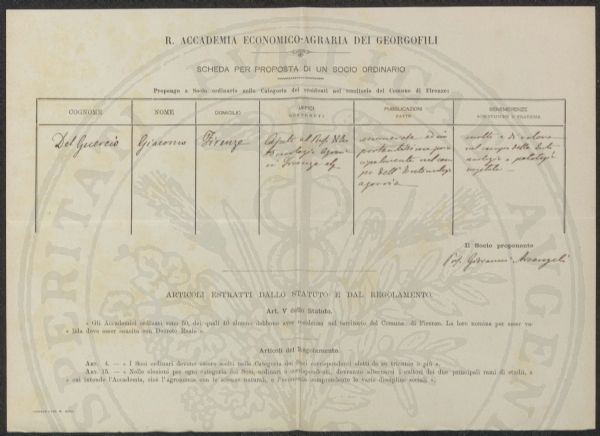 R. ACCADEMIA ECONOMICO-AGRARIA DEI GEORGOFILI
SCHEDA PER PROPOSTA DI UN SOCIO ORDINARIO
Propongo a Socio ordinario nella Categoria dei residenti nel territorio del Comune di Firenze:
COGNOME
NOME
DOMICILIO
UFFICI
PUBBLICAZIONI
FATTE
BENEMERENZE
Del Guercio
Giacomo
Firenze
numerate ed im
portantissime
nel cam
po dell'Entomologia
agraria
molte e di valore
nel campo della Ento
mologia e patologia
vegetale
Il Socio proponente
Prof. Giovanni Arcangeli
ARTICOLI ESTRATTI DALLO STATUTO E DAL REGOLAMENTO.
Art. V dello Statuto.
« Gli Accademici ordinari sono 50, dei quali 40 almeno debbono aver residenza nel territorio del Comune di Firenze. La loro nomina per esser va-
lida deve esser sancita con Decreto Reale ».
Articoli del Regolamento.
ART. 4. — « I Soci ordinari devono essere scelti nella Categoria dei Soci corrispondenti eletti da un triennio o più ».
ART. 15. — « Nelle elezioni per ogni categoria dei Soci, ordinari e corrispondenti, dovranno alternarsi i cultori dei due principali rami di studii, a
cui intende l'Accademia, cioè l'agronomia con le scienze naturali, e l'economia comprendente le varie discipline sociali ».